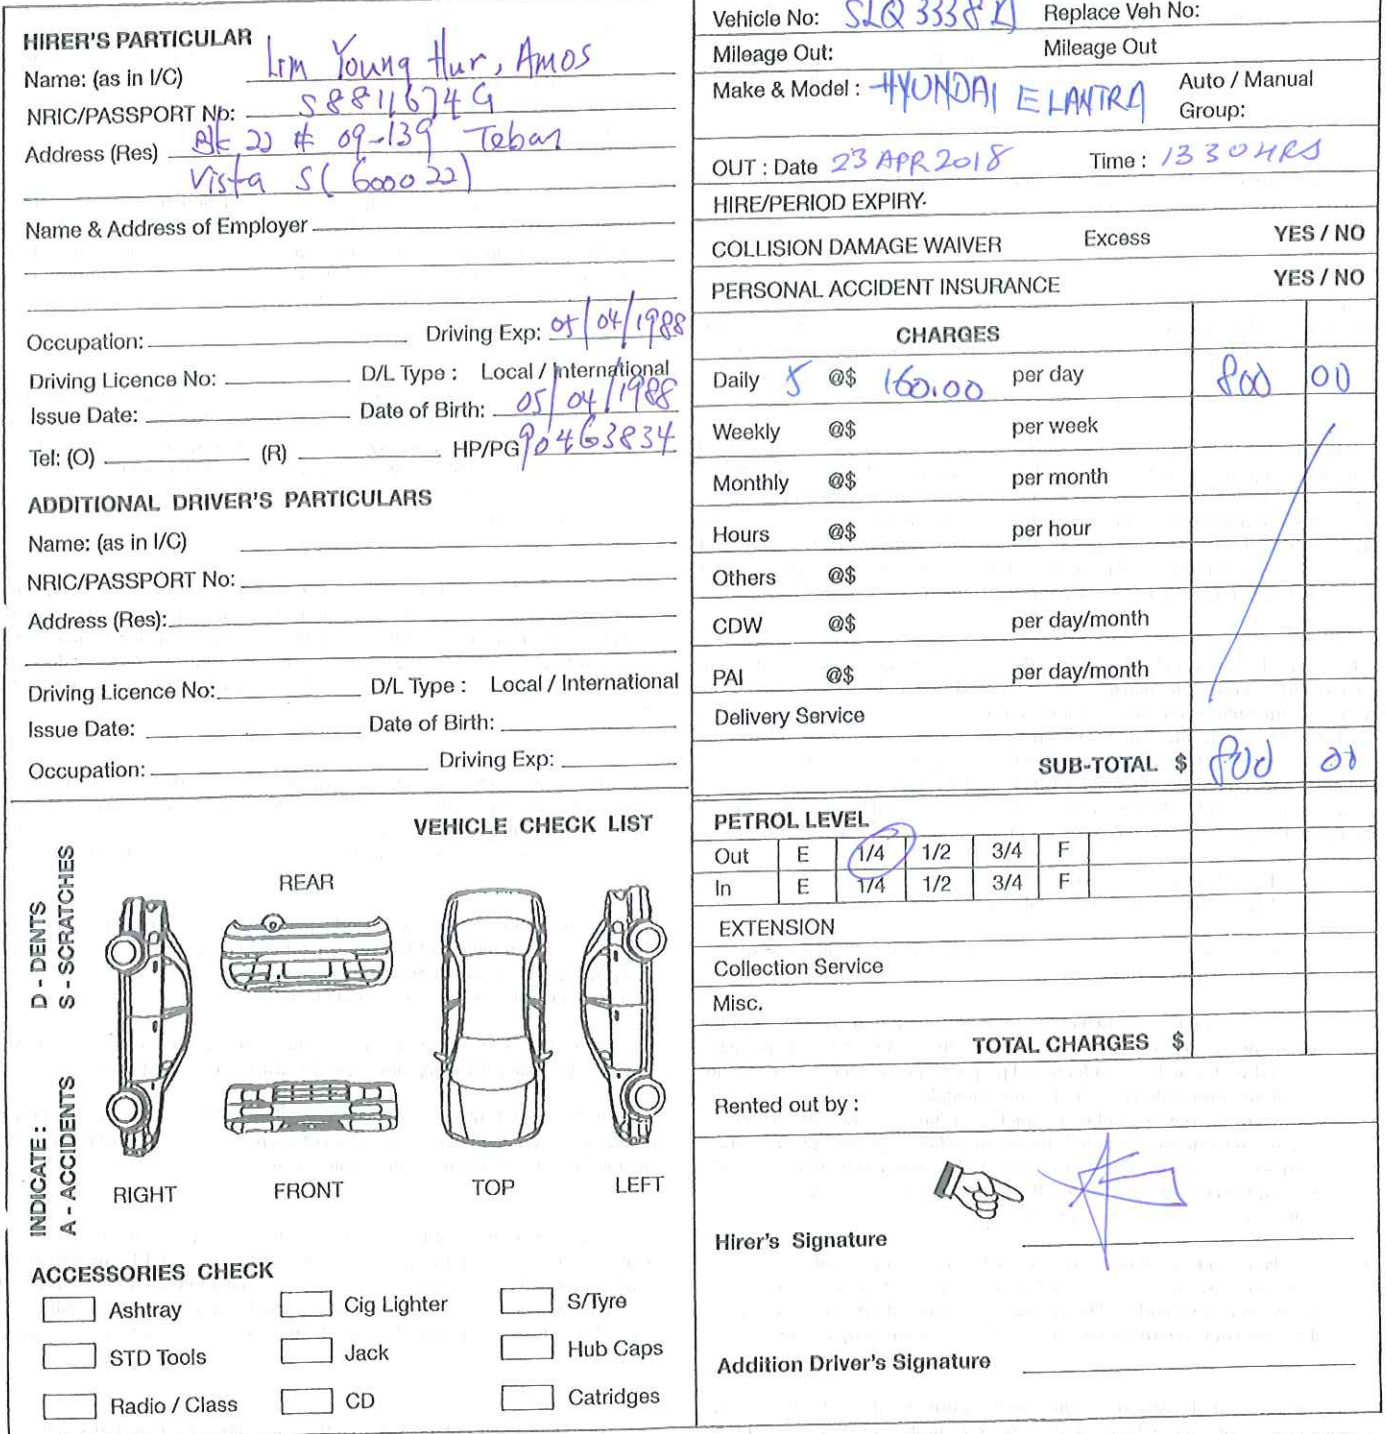 HIRER'S PARTICULAR
Name: (as in I/C) Lim Young Hur, Amos
NRIC/PASSPORT No: S8811674G
Address (Res) Blk 22 # 09-139 Teban
Vista S(600022)
Name & Address of Employer
Occupation: Driving Exp: 05/04/1988
Driving Licence No: D/L Type : Local / International
Issue Date: Date of Birth: 05/04/1988
Tel: (O) (R) HP/PG 90463834
ADDITIONAL DRIVER'S PARTICULARS
Name: (as in I/C)
NRIC/PASSPORT No:
Address (Res):
Driving Licence No: D/L Type : Local / International
Issue Date: Date of Birth:
Occupation: Driving Exp:
VEHICLE CHECK LIST
INDICATE : D - DENTS
A - ACCIDENTS S - SCRATCHES
REAR
RIGHT FRONT TOP LEFT
ACCESSORIES CHECK
Ashtray Cig Lighter S/Tyre
STD Tools Jack Hub Caps
Radio / Class CD Catridges
Vehicle No: SLQ 3338 Replace Veh No:
Mileage Out: Mileage Out
Make & Model : HYUNDAI ELANTRA Auto / Manual
Group:
OUT : Date 23 APR 2018 Time : 1330HRS
HIRE/PERIOD EXPIRY
COLLISION DAMAGE WAIVER Excess YES / NO
PERSONAL ACCIDENT INSURANCE YES / NO
CHARGES
Daily 5 @$ 160.00 per day 800 00
Weekly @$ per week
Monthly @$ per month
Hours @$ per hour
Others @$
CDW @$ per day/month
PAI @$ per day/month
Delivery Service
SUB-TOTAL $ 800 00
PETROL LEVEL
Out E 1/4 1/2 3/4 F
In E 1/4 1/2 3/4 F
EXTENSION
Collection Service
Misc.
TOTAL CHARGES $
Rented out by :
Hirer's Signature
Addition Driver's Signature